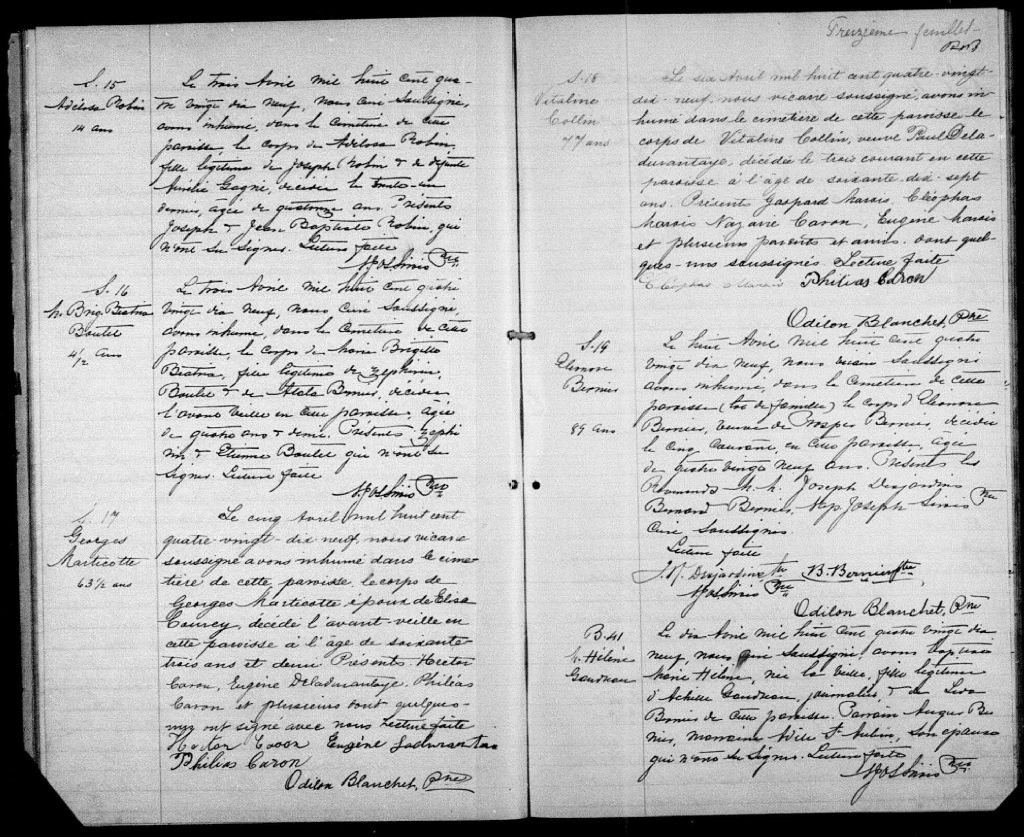 S. 15
Adélosa Robin
14 ans
Le trois Avril mil huit cent qua-
tre vingt dix neuf, nous curé soussigné,
avons inhumé, dans le cimetière de cette
paroisse, le corps de Adélosa Robin,
fille légitime de Joseph Robin & de défunte
Aurélie Gagné, décédée le trente-un
dernier, agée de quatorze ans. Présents
Joseph & Jean Baptiste Robin, qui
n'ont su signer. Lecture faite
Ptre
S. 16
M. Brig. Beatrice
Boutet
4 1/2 ans
Le trois Avril mil huit cent quatre
vingt dix neuf, nous Curé Soussigné,
avons inhumé, dans le Cimetière de cette
paroisse, le corps de Marie Brigitte
fille légitime de Zéphirin
Boutet & de Atala Bernier, décédée
l'avant veille en cette paroisse, agée
de quatre ans & demie. Présents Zéphi-
rin & Etienne Boutet qui n'ont su
Signer. Lecture faite
Ptre
S. 17
Georges
Marticotte
63 1/2 ans
Le cinq Avril mil huit cent
quatre-vingt-dix neuf, nous vicaire
soussigné avons inhumé dans le cime-
tière de cette paroisse, le corps de
Georges Marticotte époux de Elisa
décédé l'avant-veille en
cette paroisse à l'âge de soixante
trois ans et demi Présents Hector
Caron, Eugène Deladurantaye, Philéas
Caron et plusieurs dont quelques-
uns ont signé avec nous Lecture faite
Hector Eugène Ladurantaye
Philias Caron
Odilon Blanchet, Ptre
Treizième feuillet
S. 18
Vitaline
Collin
77 ans
Le six Avril mil huit cent quatre-vingt-
dix-neuf, nous vicaire soussigné, avons in-
humé dans le cimetière de cette paroisse le
corps de Vitaline Collin, veuve Paul Dela-
durantaye, décédée le trois courant en cette
paroisse à l'âge de soixante-dix-sept
ans. Présent Gaspard Marois, Cléophas
Marois Nazaire Caron, Eugène Marois
et plusieurs parents et amis dont quel-
ques-uns soussignés Lecture faite
Cléophas Marois Philias Caron
Odilon Blanchet, Ptre
S. 19
Eléonore
Bernier
89 ans
Le huit Avril mil huit cent quatre
vingt dix neuf, nous vicaire Soussigné
avons inhumé, dans le Cimetière de cette
paroisse (lot de famille) le corps d'Eléonore
Bernier, veuve de Prosper Bernier, décédée
le cinq courant, en cette paroisse, agée
de quatre vingt neuf ans. Présents les
Révérends M. M. Joseph Desjardins
Bernard Bernier, Joseph Sirois Ptre
Curé, soussignés.
Lecture faite
Desjardins, Ptre B. Bernier, Ptre
Ptre
Odilon Blanchet, Ptre
B. 41
M. Hélène
Gaudreau
Le dix Avril mil huit cent quatre vingt dix
neuf, nous Curé Soussigné, avons baptisé
Marie Hélène, née la veille, fille légitime
d'Achille Gaudreau, journalier, & de Lida
Bernier de cette paroisse. Parrain Auguste Ber-
nier, marraine Adèle St Aubin, son épouse
qui n'ont su Signer. Lecture faite
Ptre